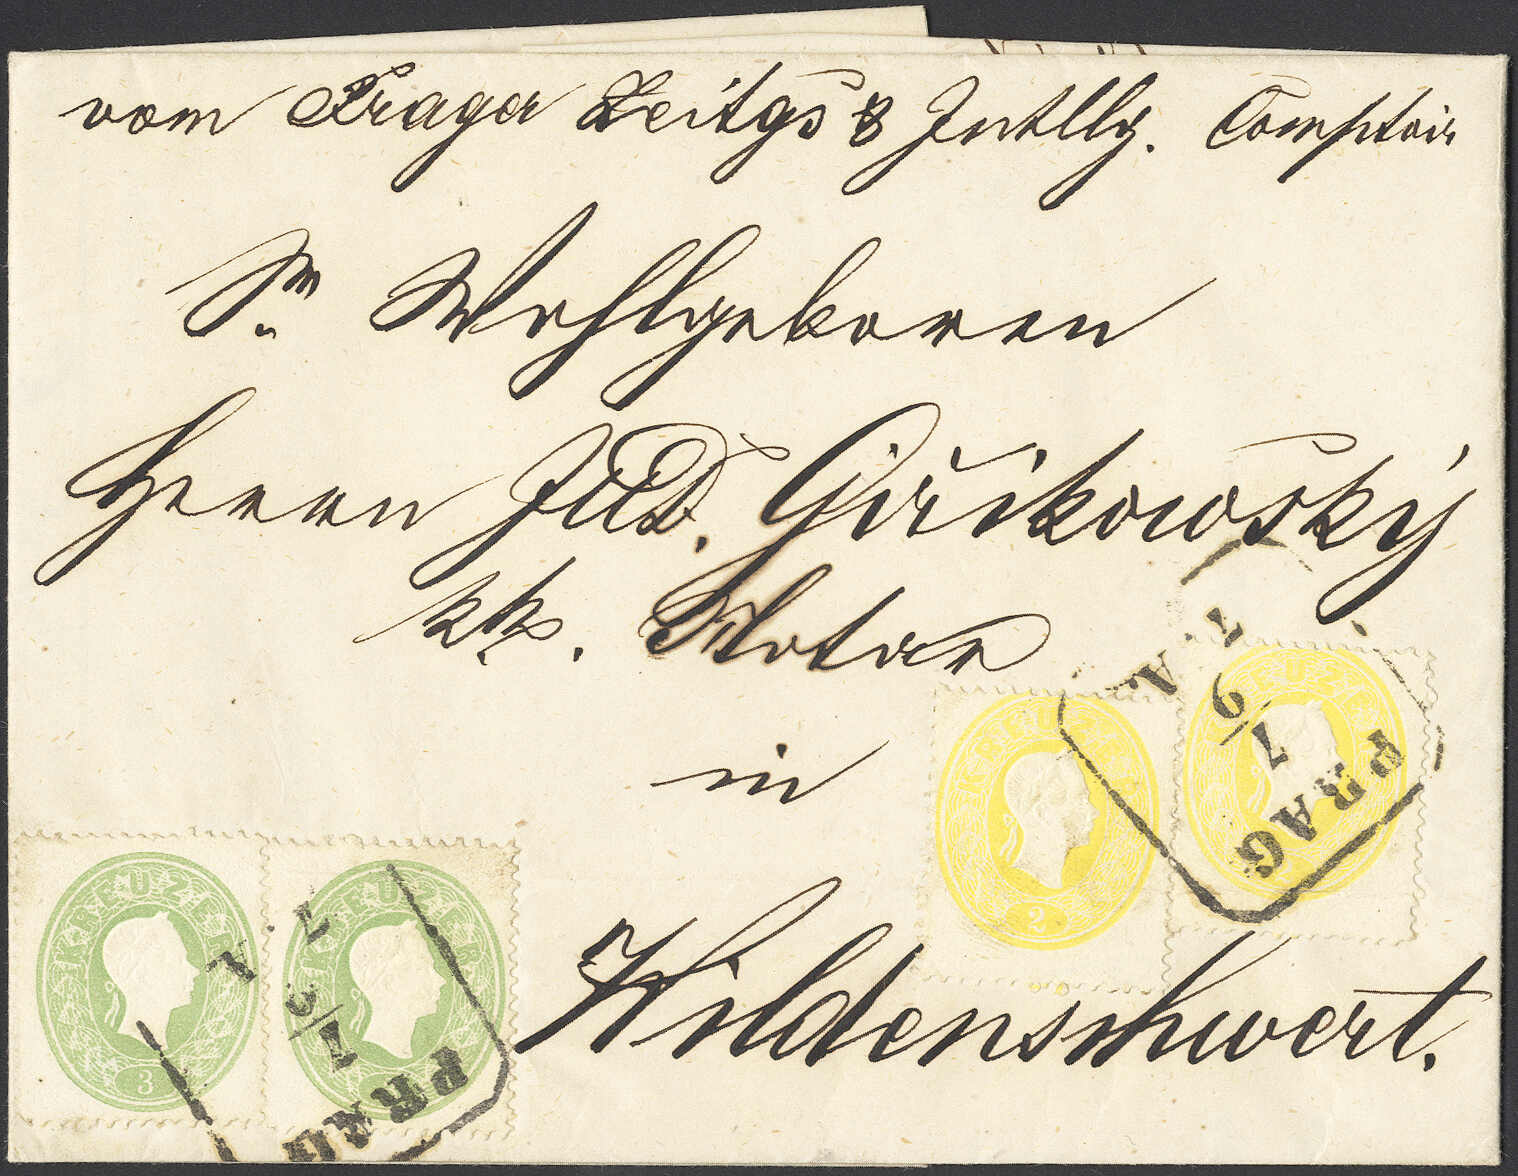 vom Prager Zeitgs & Intllg. Comptoir
Sr. Wohlgeboren
Herrn JUD. Giřikowský
kk. Notar
in
Wildenschwert.
KREUZER
2
KREUZER
PRAG
9/7
7. A.
KREUZER
3
KREUZER
PRAG
7